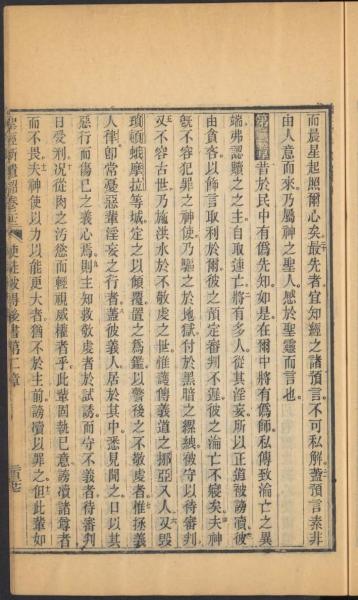 而晨星起照爾心矣最先者宜知經之諸預言不可私解蓋預言素非
由人意而來乃屬神之聖人感於聖靈而言也
第二章 昔於民中有偽先知如是在爾中將有偽師私傳致淪亡之異
端弗認贖之之主自取速亡將有多人從其淫妄所以正道被謗讟彼
由貪吝以飾言取利於爾彼之預定審判不遲彼之淪亡不寢矣夫神
既不容犯罪之神使乃驅之於地獄付於黑暗之縲絏被守以待審判
又不容古世乃施洪水於不敬虔之世惟護傳義道之挪亞又人又毀
瑣頓蛾摩拉等城定之以傾覆置之為鑒以警後之不敬虔者惟拯義
人律即常憂惡輩淫妄之行者蓋彼義人居於其中悉見聞之日以其
惡行而傷己之義心焉則主知救敬虔者於試誘而守不義者待審判
日受刑況從肉之污慾而輕視威權者乎此輩固執己意謗讟諸尊者
而不畏夫神使以力以能更大者猶不於主前謗讟以罪之但此輩如
聖經新遺詔 使徒彼得後書第二章